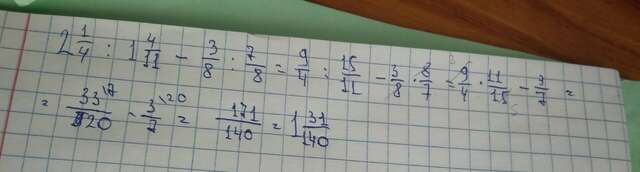 2 1/4 : 1 4/11 - 3/8 : 7/8 = 9/4 : 15/11 - 3/8 · 8/7 = 9/4 · 11/15 - 3/7 =
= 33\7/20 - 3\20/7 = 171/140 = 1 31/140